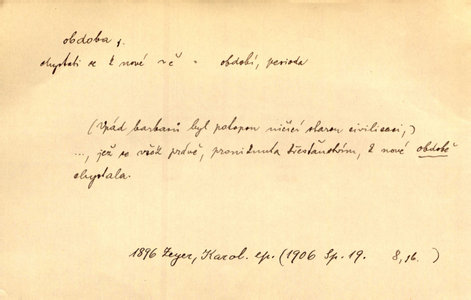 obdoba f.
chystati se k nové ~ě = období, perioda
(Vpád barbarů byl potopou ničící starou civilisaci,)
..., jež se však právě, proniknuta křesťanstvím, k nové obdobě
chystala.
1896 Zeyer, Karol. ep. (1906 Sp. 19. 8, 16. )